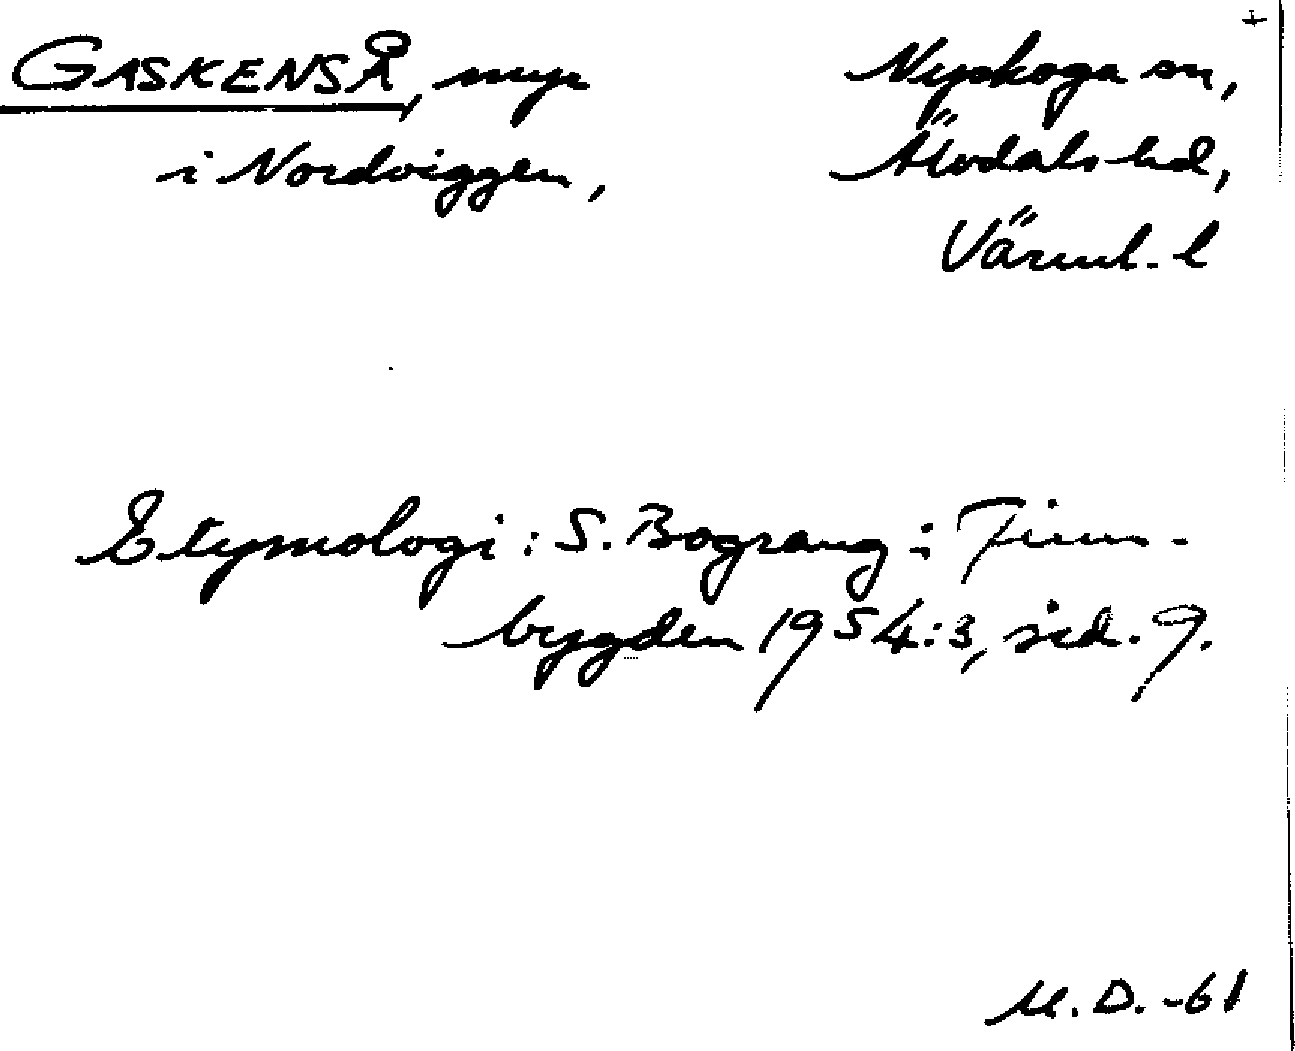 GASKENSÅ, myr
i Nordviggen,
Nyskoga sn,
Älvdals hd,
Värml. l
Etymologi: S. Bograng: Finn-
bygden 1954:3, sid. 9.
M.D. -61